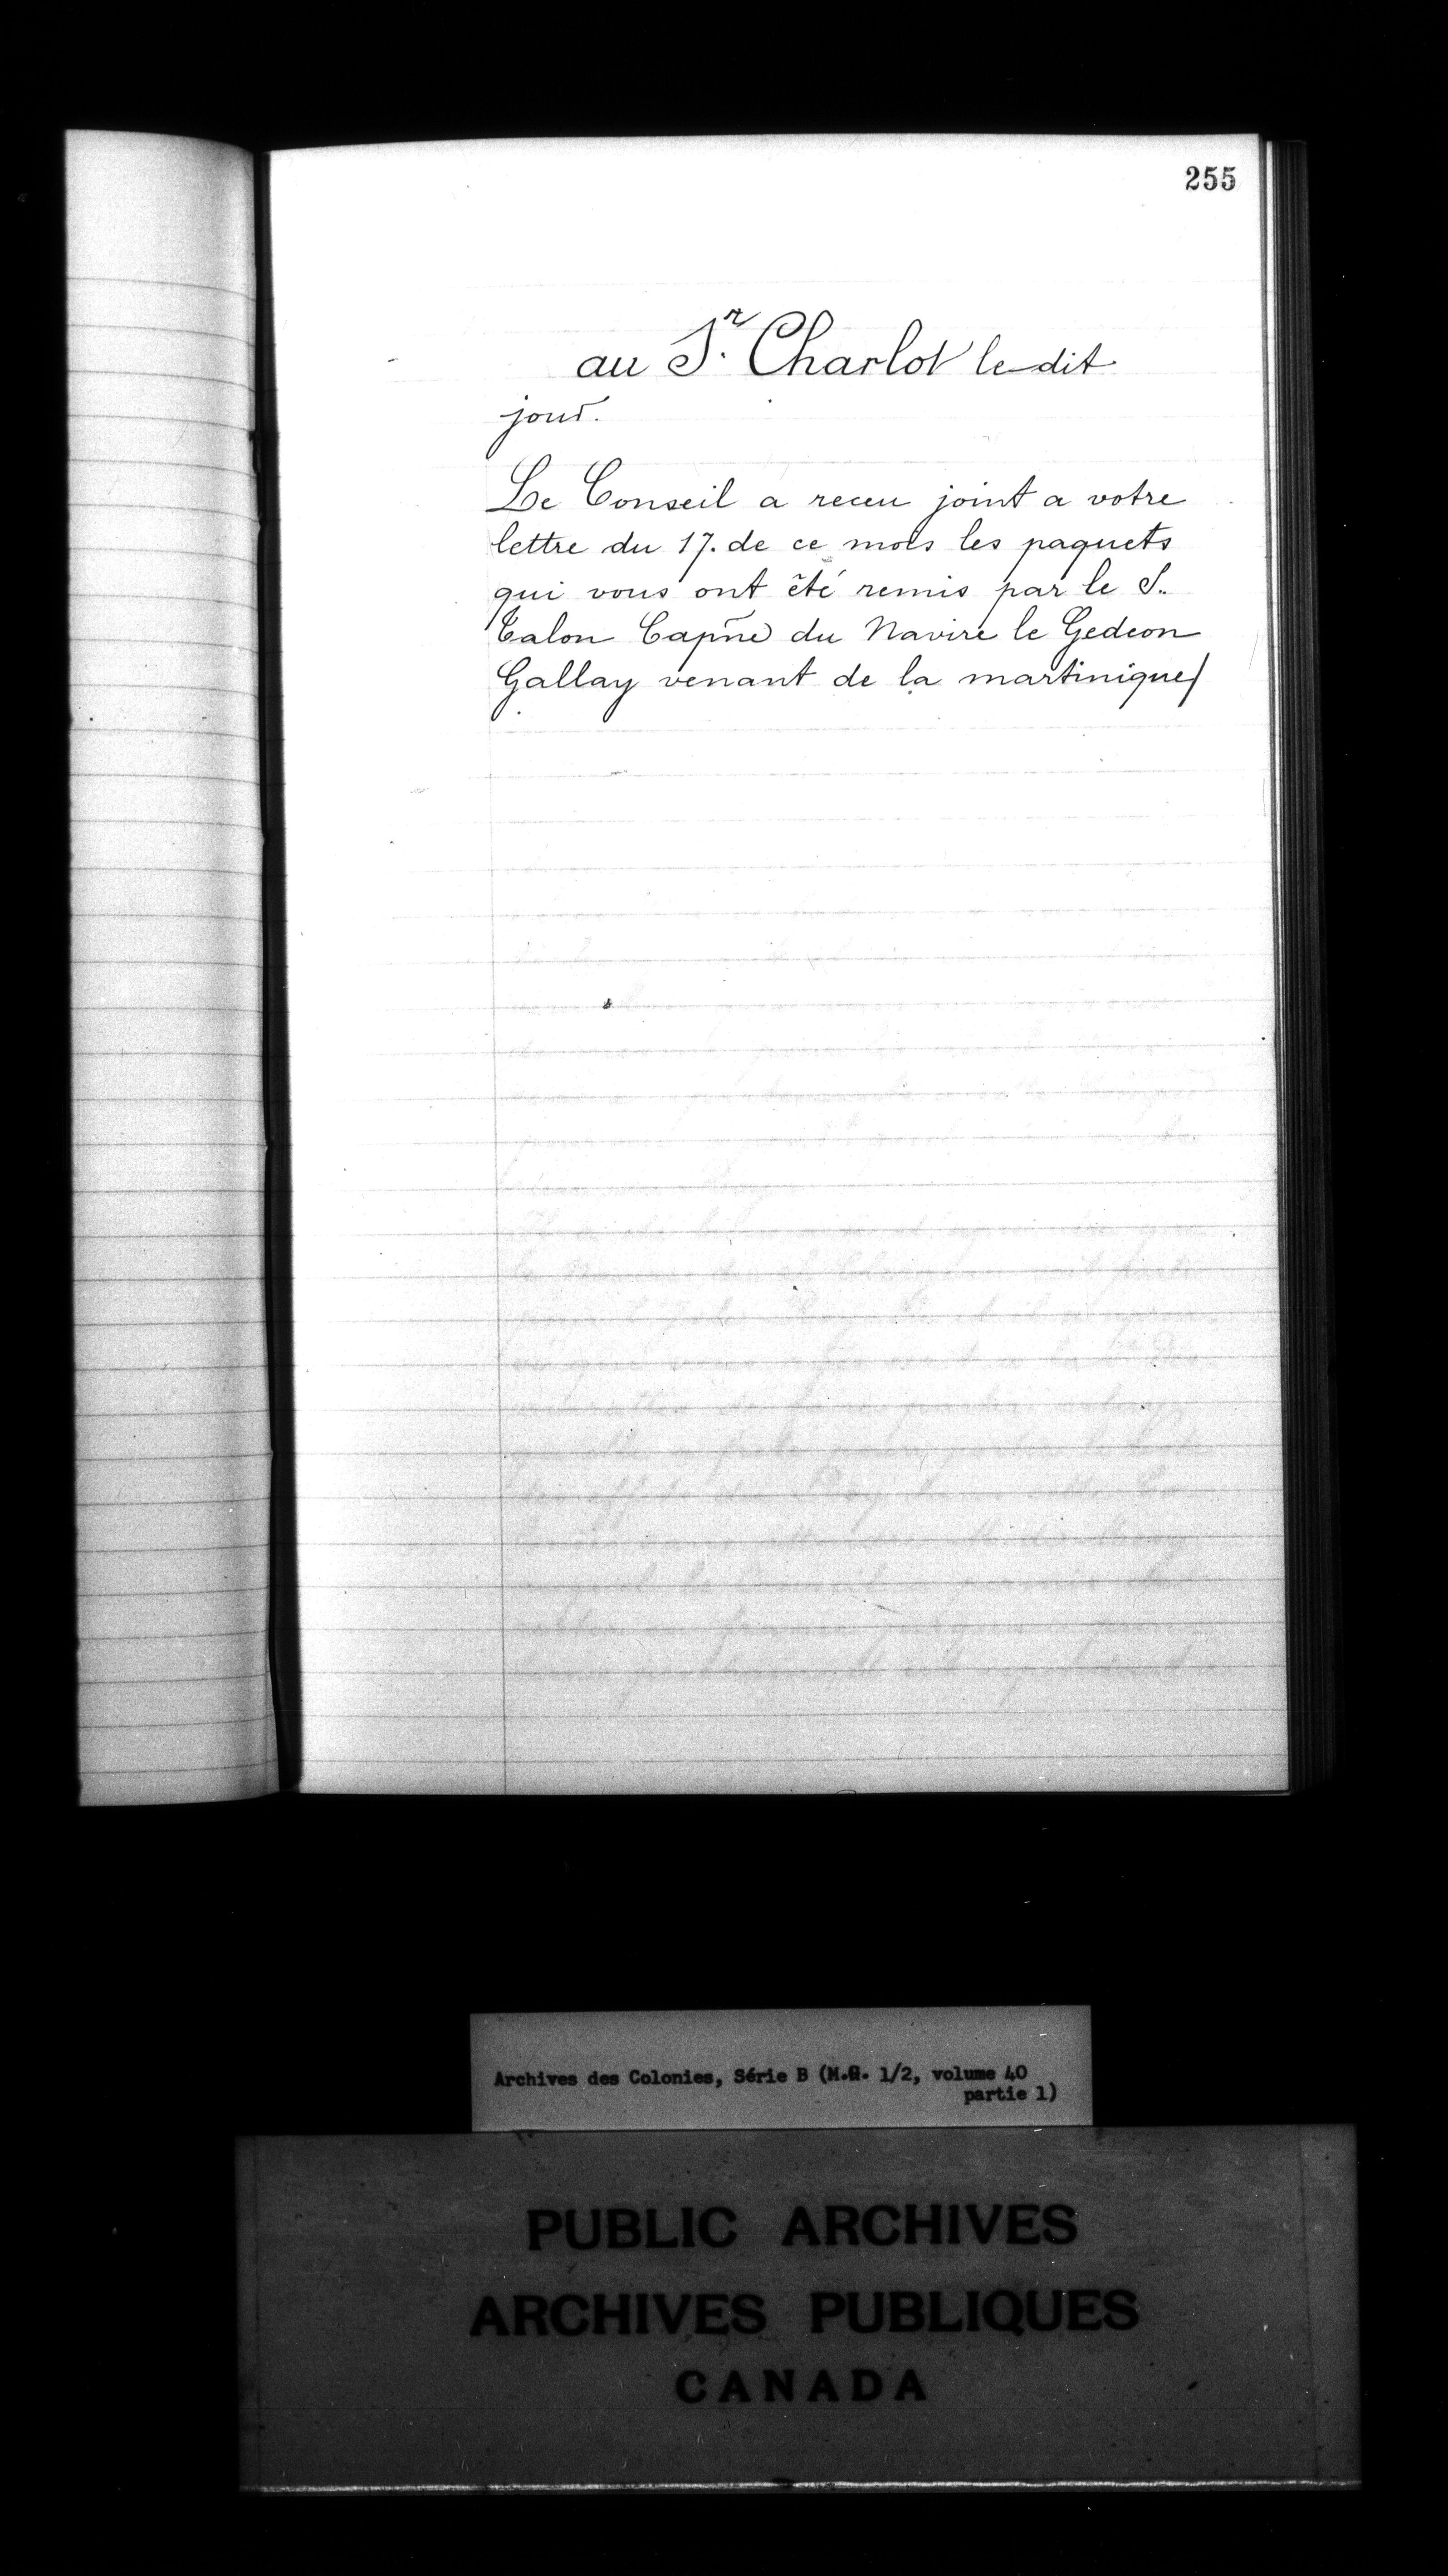 255
au S.r Charlot le dit
jour.
Le Conseil a receu joint a votre
lettre du 17. de ce mois les paquets
qui vous ont été remis par le S..
Talon Capñe du Navire le Gedeon
Gallay venant de la martinique/
Archives des Colonies, Série B (M.G. 1/2, volume 40
partie 1)
PUBLIC ARCHIVES
ARCHIVES PUBLIQUES
CANADA